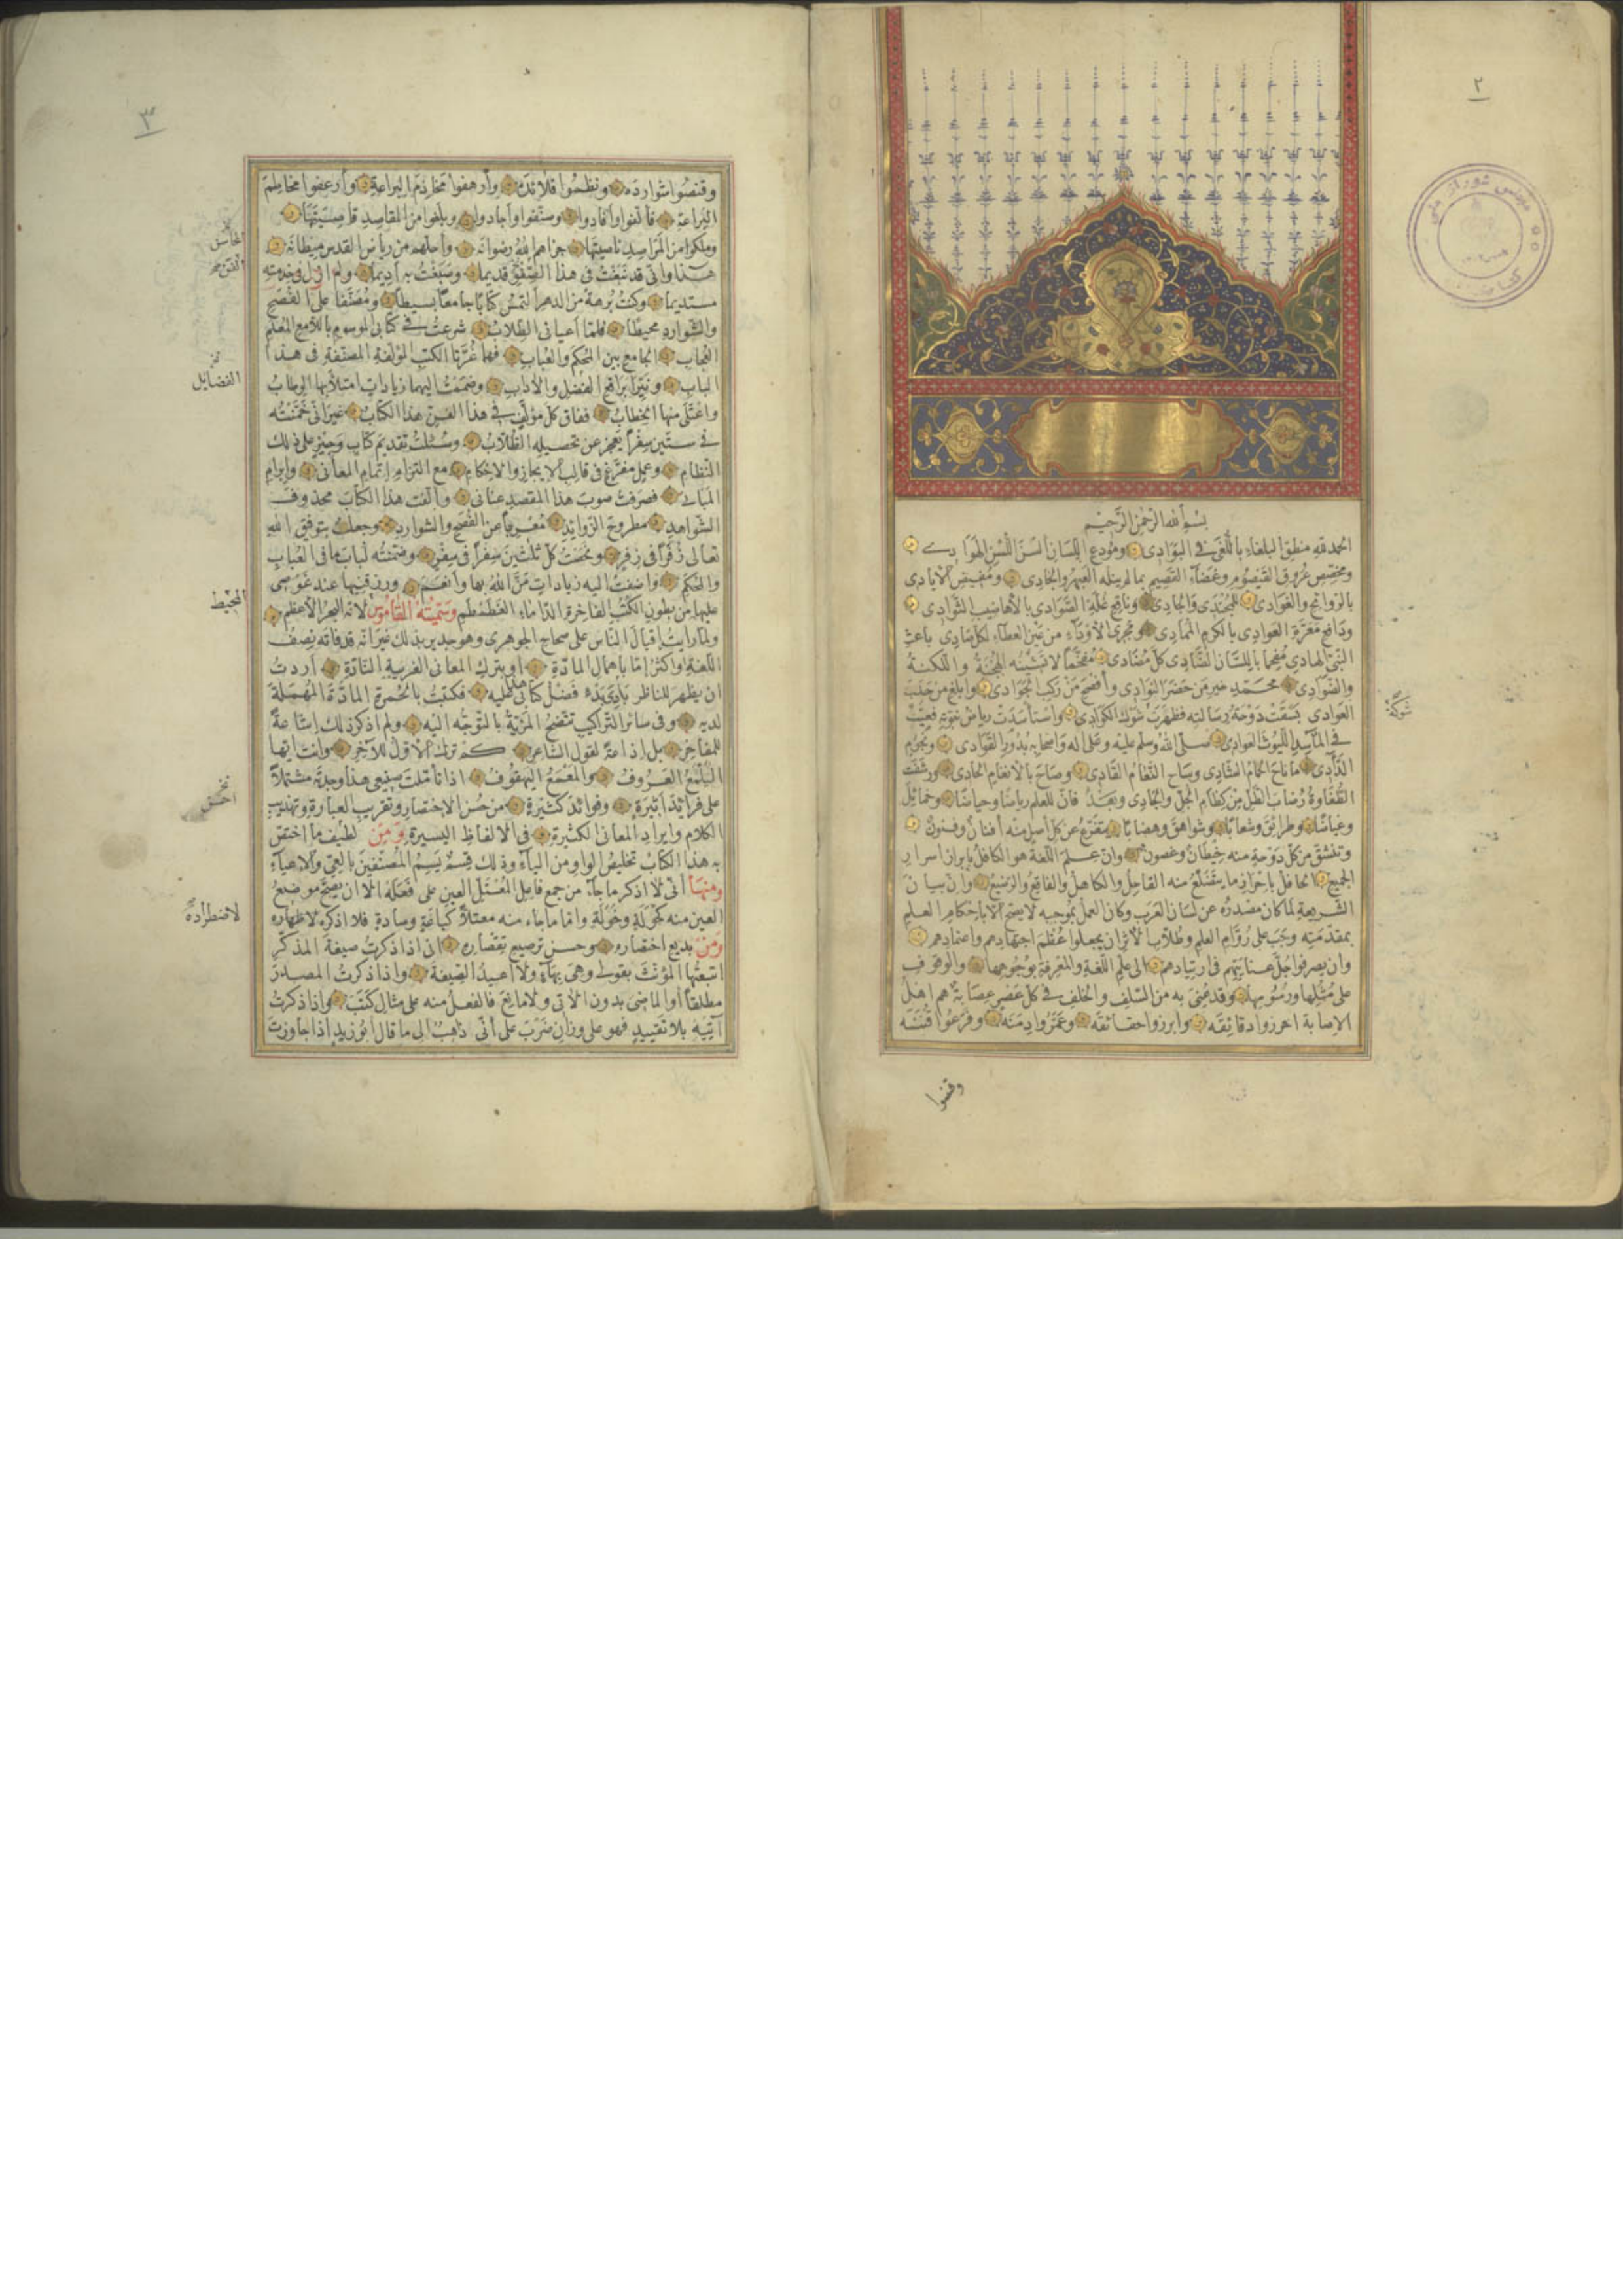 ٢
بسم الله الرحمن الرحيم
الحمد لله منطق البلغاء باللغى فى البوادى ومودع اللسان ألسن اللسن الهوادى
ومخصص عروق القيصوم وغضا القصيم بما لم ينله العبهر والجادى ومفيض الايادى
بالروائح والغوادى للمجتدى والجادى وناقع غلة الصوادى بالاهاضيب الثوادى
ودافع معرة العوادى بالكرم الممادى ومجرى الاوداء من عين العطاء لكل صادى باعث
النبى الهادى مفحما باللسان الضادى كل مضادى مفخما لا تشينه الهجنة واللكنة
والضوادى محمد خير من حضر النوادى وأفصح من ركب الخوادى وابلغ من حلب
العوادى بسقت دوحة رسالته فظهرت شوكة الكوادى واستأسدت رياض نبوته فعيت
فى المآسد الليوث العوادى صلى الله وسلم عليه وعلى اله واصحابه بدور القوادى ونجوم
الدآدى ما ناح الحمام الشادى وساح النعام القادى وصاح بالانغام الحادى ورشفت
الطفاوة رضاب الطل من كظام الجل والجادى وبعد فان للعلم رياضا وحياضا وخمائل
وغياضا وطرائق وشعابا وشواهق وهضابا يتفرع عن كل اصل منه أفنان وفنون
وتنشق من كل دوحة منه خيطان وغصون وان علم اللغة هو الكافل بابراز اسرار
الجميع الحافل باحراز ما يتضلع منه القاحل والكاهل والفاقع والرضيع وان بيان
الشريعة لما كان مصدره عن لسان العرب وكان العمل بموجبه لا يصح الا باحكام العلم
بمقدمته وجب على روام العلم وطلاب الاثر ان يجعلوا عظم اجتهادهم واعتمادهم
وان يصرفوا جل عنايتهم فى ارتيادهم الى علم اللغة والمعرفة بوجوهها والوقوف
على مثلها ورسومها وقد عنى به من السلف والخلف فى كل عصر عصابة هم اهل
الاصابة احرزوا دقائقه وابرزوا حقائقه وعمروا دمنه وفرعوا قننه
وقنصوا
شوكة
٣
وقنصوا شوارده ونظموا قلائده وأرهفوا مخاذم البراعة وأرعفوا مخاطم
اليراعة فألفوا وأفادوا وصنفوا وأجادوا وبلغوا من المقاصد قاصيتها
وملكوا من المراصد ناصيتها جزاهم الله رضوانه وأحلهم من رياض القدس ميطانه
هذا وانى قد نبغت فى هذا الفن قديما وصبغت به أديما ولم ازل فى خدمته
مستديما وكنت برهة من الدهر التمس كتابا جامعا بسيطا ومصنفا على الفصح
والشوارد محيطا فلما أعيانى الطلاب شرعت فى كتابى الموسوم باللامع المعلم
العجاب الجامع بين المحكم والعباب فهما غرتا الكتب المؤلفة المصنفة فى هذا
الباب ونيرا براقع الفضل والاداب وضممت اليهما زيادات امتلأ بها الوطاب
واعتلى منها الخطاب ففاق كل مؤلف فى هذا الفن هذا الكتاب غير انى خمنته
فى ستين سفرا يعجز عن تحصيله الطلاب وسئلت تقديم كتاب وجيز على ذلك
النظام وعمل مفرغ فى قالب الايجاز والاحكام مع التزام اتمام المعانى وابرام
المبانى فصرفت صوب هذا المقصد عنانى وألفت هذا الكتاب محذوف
الشواهد مطروح الزوائد معربا عن الفصح والشوارد وجعلت بتوفيق الله
تعالى زفرا فى زفر ولخصت كل ثلثين سفرا فى سفر وضمنته لباب ما فى العباب
والمحكم واضفت اليه زيادات من الله بها وأنعم ورزقنيها عند غوصى
عليها من بطون الكتب الفاخرة الدأماء الغطمطم وسميته القاموس لانه البحر الاعظم
ولما رأيت اقبال الناس على صحاح الجوهرى وهو جدير بذلك غير انه قد فاته نصف
اللغة او اكثر إما باهمال المادة او بترك المعانى الغريبة النادة أردت
ان يظهر للناظر بادى بدء فضل كتابى هذا عليه فكتبت بالحمرة المادة المهملة
لديه وفى سائر التراكيب تتضح المزية بالتوجه اليه ولم اذكر ذلك اشاعة
للمفاخر بل إذاعة لقول الشاعر كم ترك الاول للآخر وانت ايها
اليلمع العروف والمعمع اليهفوف اذا تأملت صنيعى هذا وجدته مشتملا
على فرائد اثيرة وفوائد كثيرة من حسن الاختصار وتقريب العبارة وتهذيب
الكلام وايراد المعانى الكثيرة فى الالفاظ اليسيرة ومن لطيف ما اختص
به هذا الكتاب تخليص الواو من الياء وذلك قسم يسم المصنفين بالعى والاعياء
ومنها أنى لا اذكر ما جاء من جمع فاعل المعتل العين على فعلة الا ان يصح موضع
العين منه كجولة وخولة واما ما جاء منه معتلا كباعة وسادة فلا اذكره لاطراده
ومن بديع اختصاره وحسن ترصيع تقصاره انى اذا ذكرت صيغة المذكر
اتبعتها المؤنث بقولى وهى بهاء ولا اعيد الصيغة واذا ذكرت المصدر
مطلقا أو الماضى بدون الآتى ولا مانع فالفعل منه على مثال كتب واذا ذكرت
آتيه بلا تقييد فهو على وزان ضرب على أنى ذاهب الى ما قال ابو زيد اذا جاوزت
الفضايل
المحيط
احسن
لاضطراده